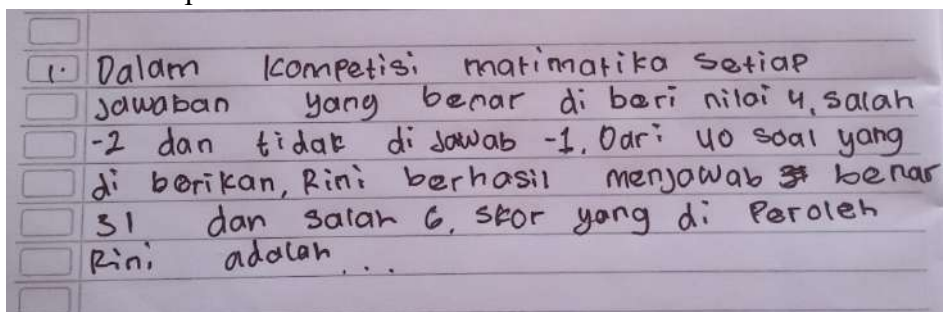 1. Dalam Kompetisi matimatika Setiap
Jawaban yang benar di beri nilai 4, salah
-2 dan tidak di Jawab -1. Dari 40 soal yang
di berikan, Rini berhasil menjawab benar
31 dan salah 6, skor yang di Peroleh
Rini adalah . . .